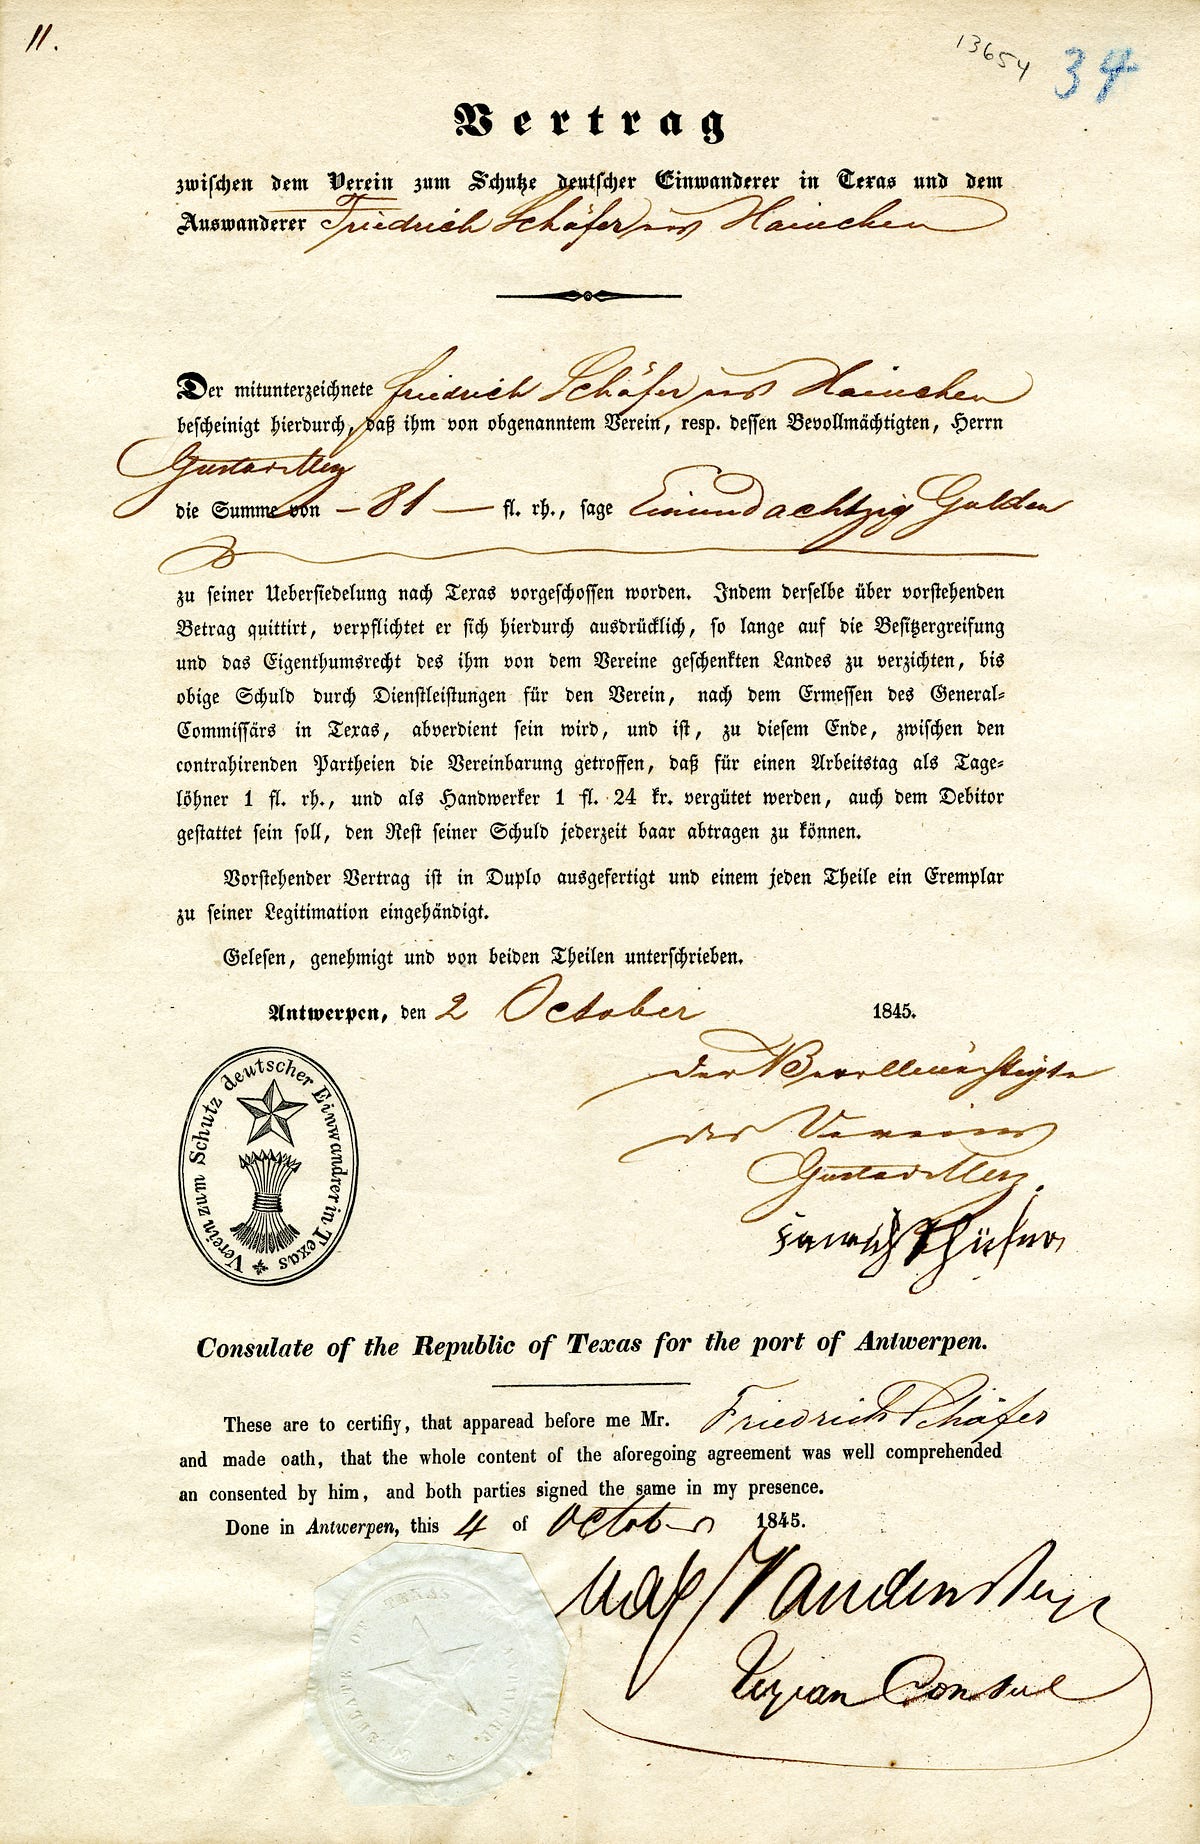 11.
13654
34
Vertrag
zwischen dem Verein zum Schutze deutscher Einwanderer in Texas und dem
Auswanderer Friedrich Schäfer aus Hainchen
Der mitunterzeichnete Friedrich Schäfer aus Hainchen
bescheinigt hierdurch, daß ihm von obgenanntem Verein, resp. dessen Bevollmächtigten, Herrn
Gustav Merz
die Summe von – 81 — fl. rh., sage Einundachtzig Gulden
zu seiner Uebersiedelung nach Texas vorgeschossen worden. Indem derselbe über vorstehenden
Betrag quittirt, verpflichtet er sich hierdurch ausdrücklich, so lange auf die Besitzergreifung
und das Eigenthumsrecht des ihm von dem Vereine geschenkten Landes zu verzichten, bis
obige Schuld durch Dienstleistungen für den Verein, nach dem Ermessen des General-
Commissärs in Texas, abverdient sein wird, und ist, zu diesem Ende, zwischen den
contrahirenden Partheien die Vereinbarung getroffen, daß für einen Arbeitstag als Tage-
löhner 1 fl. rh., und als Handwerker 1 fl. 24 kr. vergütet werden, auch dem Debitor
gestattet sein soll, den Rest seiner Schuld jederzeit baar abtragen zu können.
Vorstehender Vertrag ist in Duplo ausgefertigt und einem jeden Theile ein Exemplar
zu seiner Legitimation eingehändigt.
Gelesen, genehmigt und von beiden Theilen unterschrieben.
Antwerpen, den 2 October 1845.
Der Bevollmächtigte
des Vereins
Gustav Merz.
Verein zum Schutz deutscher Einwandrer in Texas
Consulate of the Republic of Texas for the port of Antwerpen.
These are to certifiy, that apparead before me Mr. Friedrich Schäfer
and made oath, that the whole content of the aforegoing agreement was well comprehended
an consented by him, and both parties signed the same in my presence.
Done in Antwerpen, this 4 of October 1845.
Texian Consul